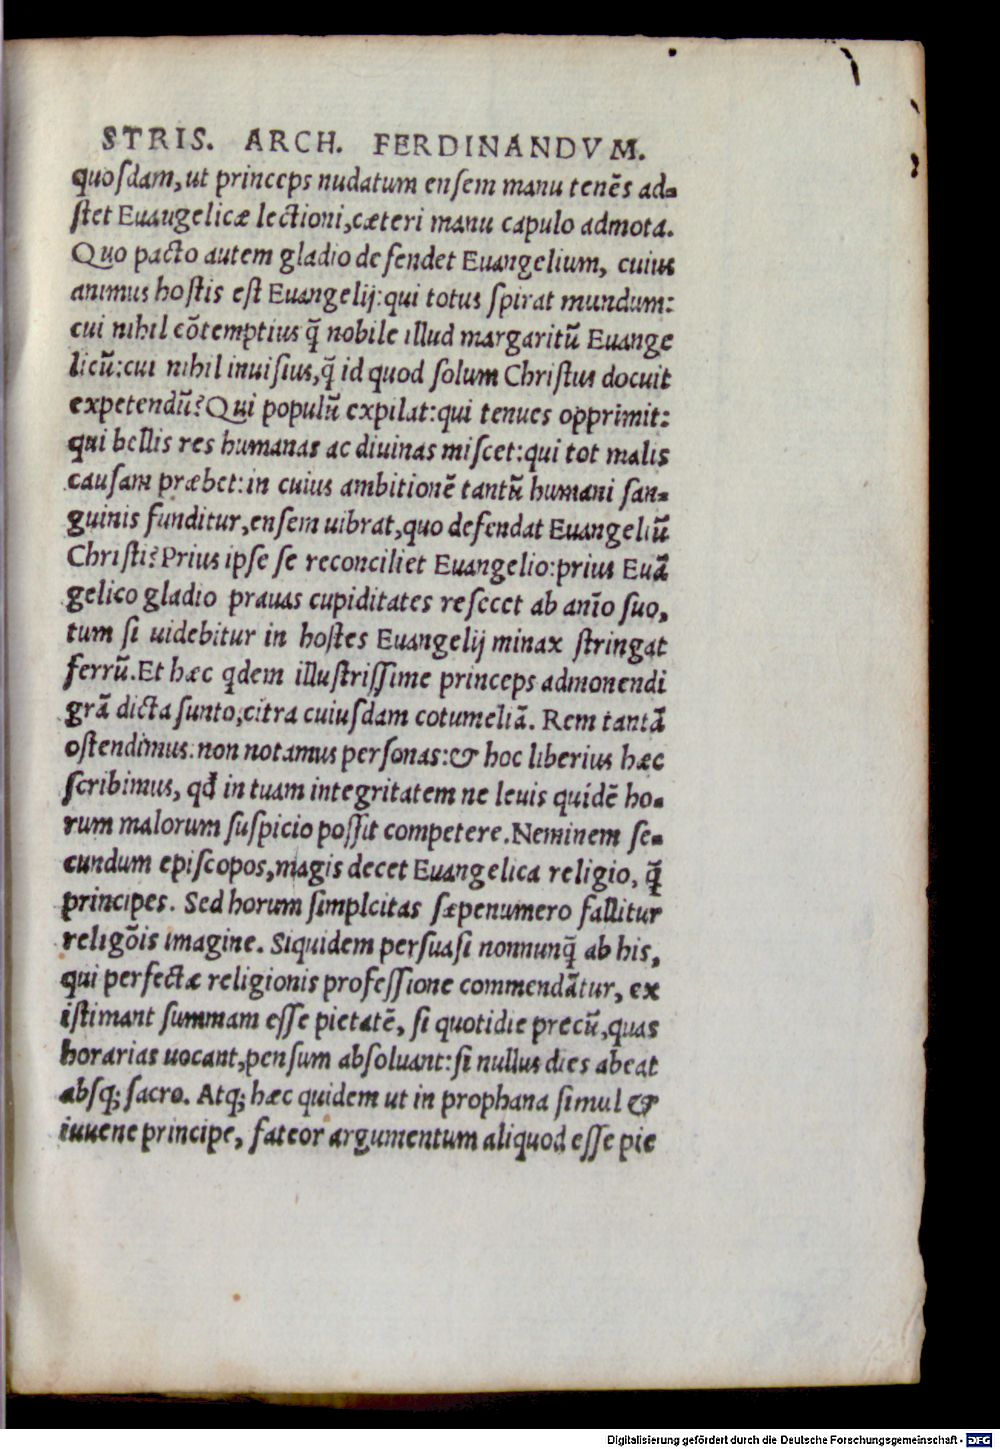 STRIS. ARCH. FERDINANDVM.
quosdam, ut princeps nudatum ensem manu tenẽs ad-
stet Euaugelicæ lectioni, cæteri manu capulo admota.
Quo pacto autem gladio defendet Euangelium, cuius
animus hostis est Euangelij: qui totus spirat mundum:
cui nihil cõtemptius q̃ nobile illud margaritũ Euange
licũ: cui nihil inuisius, q̃ id quod solum Christus docuit
expetendũ? Qui populũ expilat: qui tenues opprimit:
qui bellis res humanas ac diuinas miscet: qui tot malis
causam præbet: in cuius ambitionẽ tantũ humani san-
guinis funditur, ensem uibrat, quo defendat Euangeliũ
Christi? Prius ipse se reconciliet Euangelio: prius Euã
gelico gladio prauas cupiditates resecet ab anĩo suo,
tum si uidebitur in hostes Euangelij minax stringat
ferrũ. Et hæc qdem illustrissime princeps admonendi
grã dicta sunto, citra cuiusdam cotumeliã. Rem tantã
ostendimus: non notamus personas: & hoc liberius hæc
scribimus, qđ in tuam integritatem ne leuis quidẽ ho-
rum malorum suspicio possit competere. Neminem se-
cundum episcopos, magis decet Euangelica religio, q̃
principes. Sed horum simplcitas sæpenumero fallitur
religõis imagine. Siquidem persuasi nonnunq̃ ab his,
qui perfectæ religionis professione commendãtur, ex
istimant summam esse pietatẽ, si quotidie precũ, quas
horarias uocant, pensum absoluant: si nullus dies abeat
absq; sacro. Atq; hæc quidem ut in prophana simul &
iuuene principe, fateor argumentum aliquod esse pie
Digitalisierung gefördert durch die Deutsche Forschungsgemeinschaft - DFG